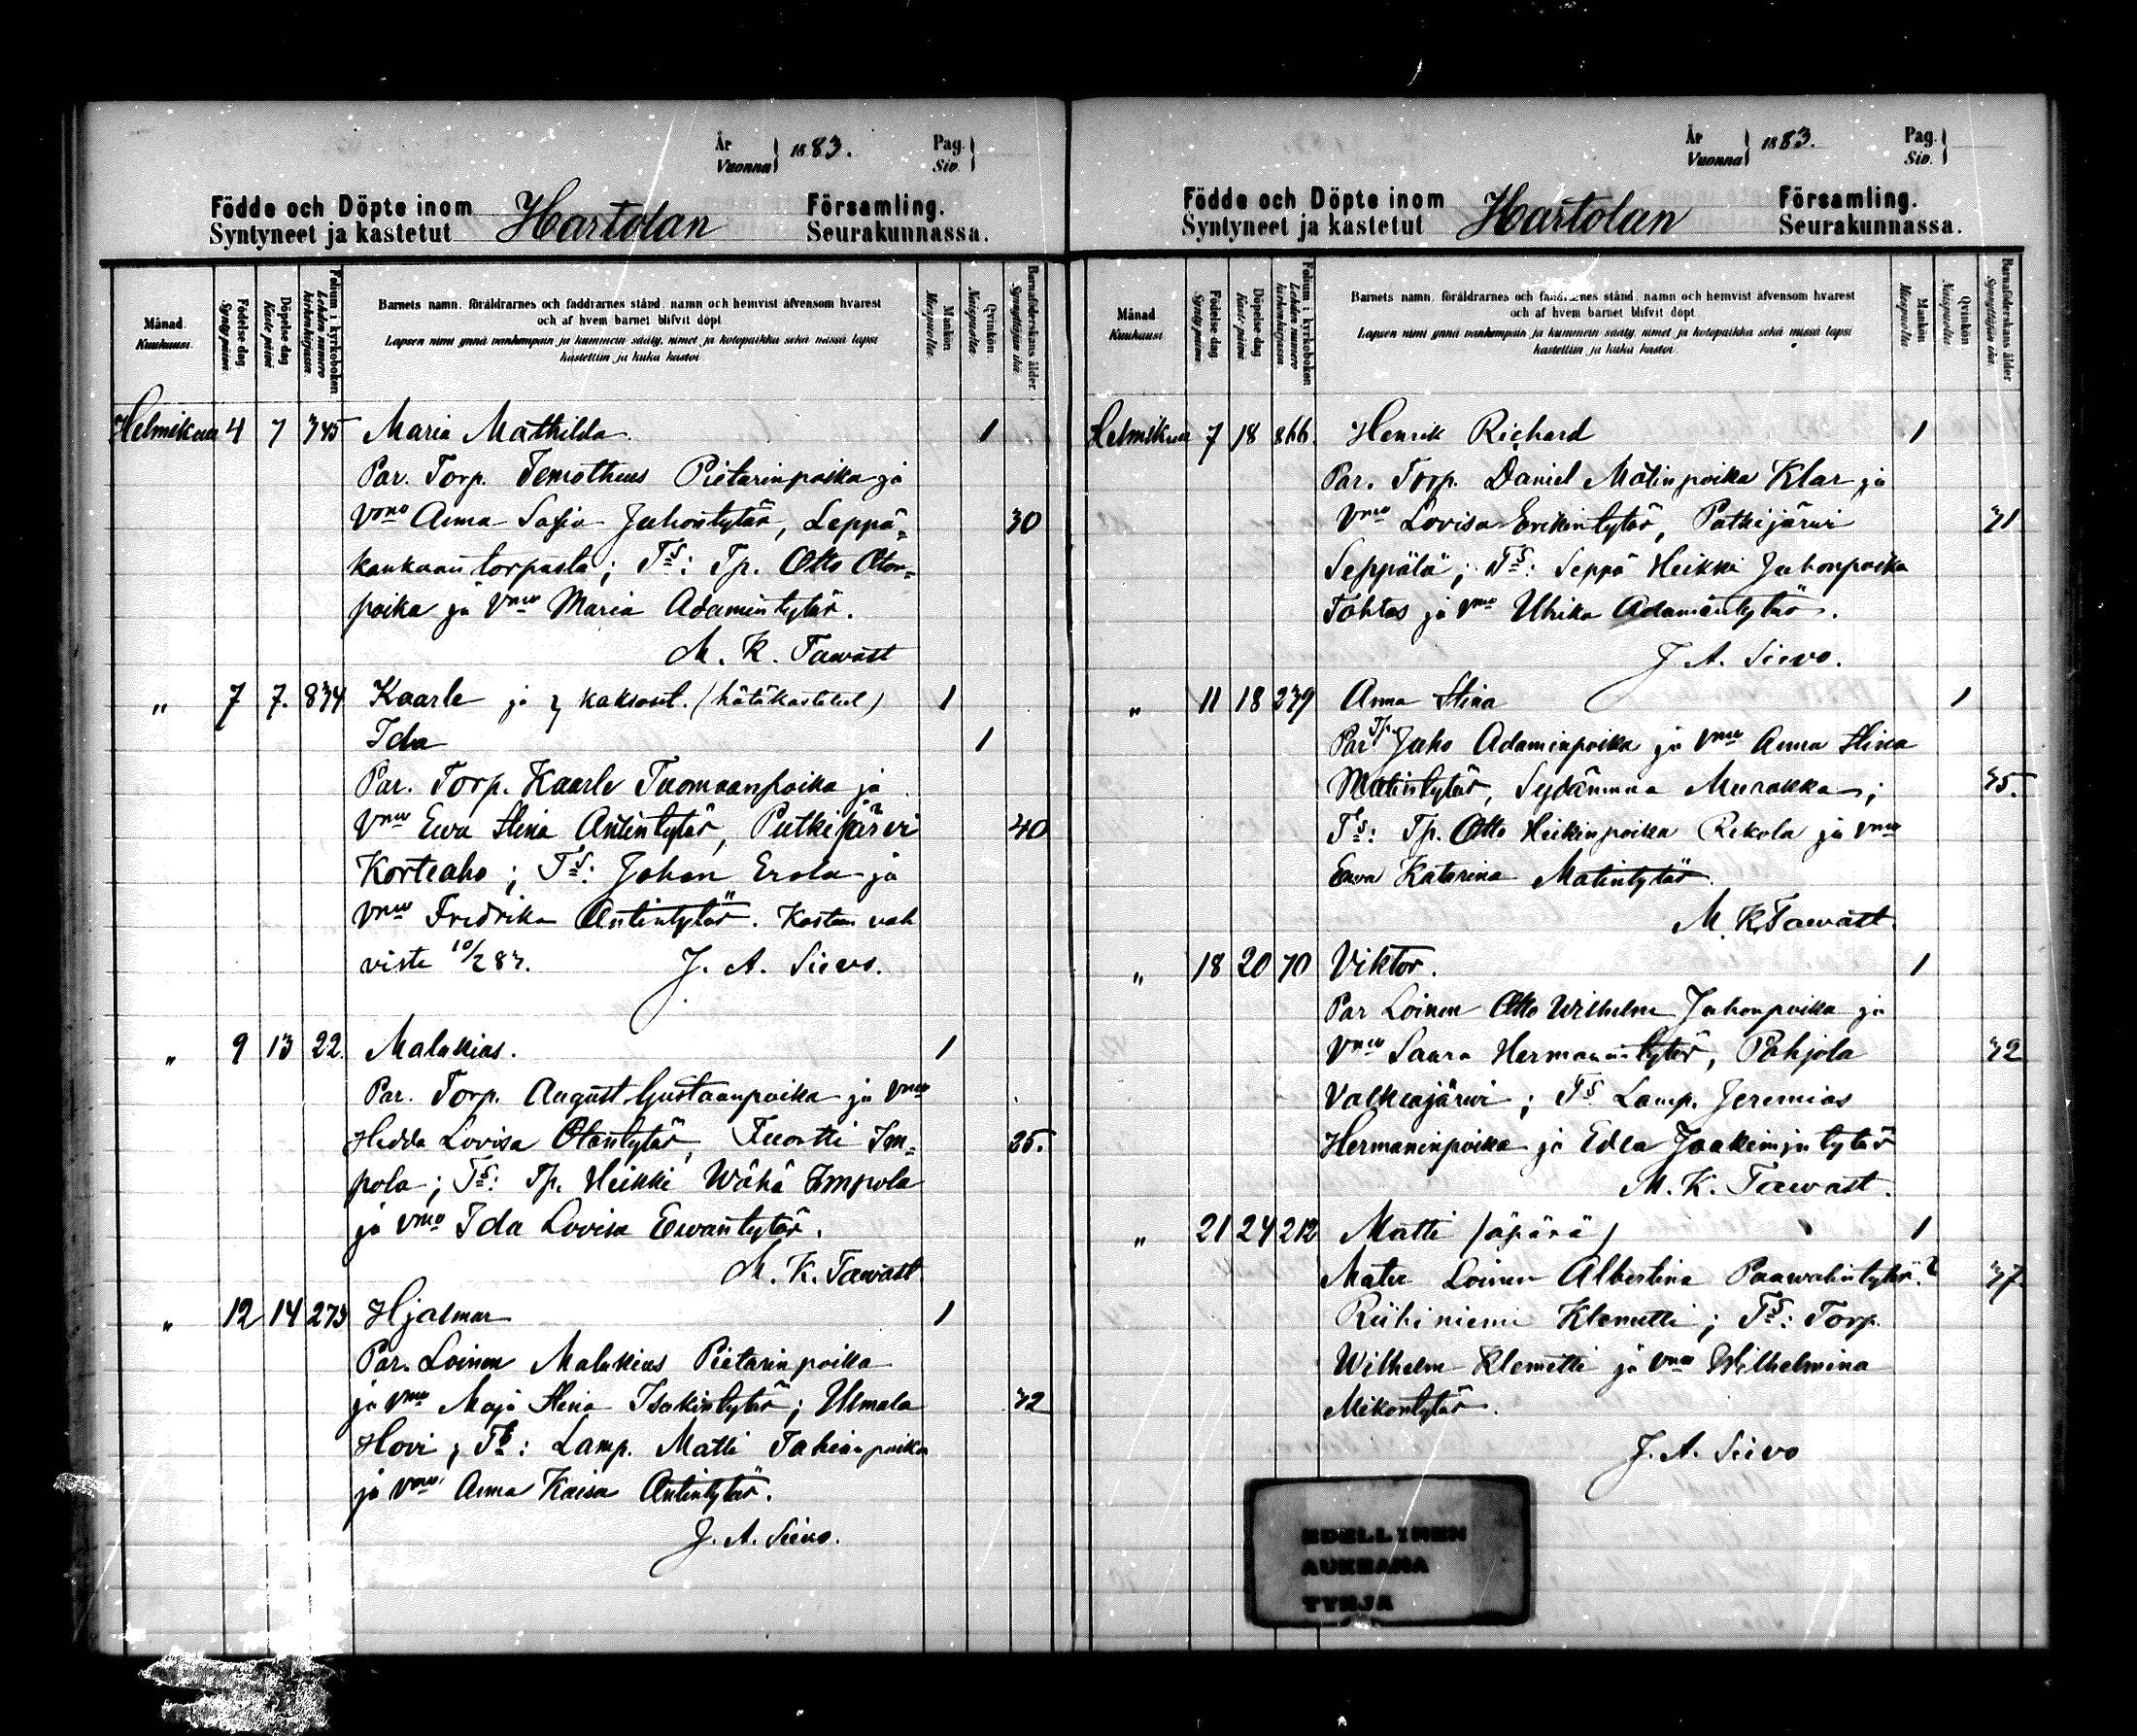 År
Vuonna
1883.
Pag.
Siv.
Födde och Döpte inom Hartolan Församling.
Syntyneet ja kastetut Seurakunnassa.
Månad.
Kuukausi.
Födelse-dag
Syntypäivä.
Döpelse-dag
Kaste-päivä
Folium i kyrkoboken
Lehden numero kirkonkirjassa.
Barnets namn, föräldrarnes och faddrarnes stånd, namn och hemvist äfvensom hvarest
och af hvem barnet blifvit döpt.
Lapsen nimi ynnä vanhempain ja kummein sääty, nimet ja kotopaikka sekä missä lapsi
kastettiin ja kuka kastoi.
Mankön
Miespuolta.
Qvinkön
Naispuolta.
Barnaföderskans ålder.
Synnyttäjän ikä.
Helmikuu 4 7 345 Maria Mathilda. 1
Par. Torp. Temotheus Pietarinpoika ja
Vmo Anna Sofia Juhontytär, Leppä- 30
kankaan torpasta; Ts: Tp. Otto Oton-
poika ja Vmo Maria Adamintytär.
M. K. Tawast
" 7 7. 834 Kaarle ja } kaksoset. (hätäkastetut) 1
Ida 1
Par. Torp. Kaarle Tuomaanpoika ja
Vmo Ewa Stina Antintytär, Putkijärvi 40
Korteaho; Ts: Johan Erola ja
Vmo Fredrika Antintytär. Kasteen vah
visti 10/2 83. J. A. Sievo.
" 9 13 22. Malakias. 1
Par. Torp. August Gustaanpoika ja Vmo
Hedda Lovisa Otontytär, Tuontti Im- 25.
pola; Ts: Tp. Heikki Wähä Impola
ja Vmo Ida Lovisa Eewantytär.
M. K. Tawast
" 12 14 273 Hjalmar 1
Par. Loinen Malakias Pietarinpoika
ja Vmo Maja Stina Isakintytär; Ulmala 32
Hovi; Ts: Lamp. Matti poika
ja Vmo Anna Kaisa Antintytär.
J. A. Sievo.
År
Vuonna
1883.
Pag.
Siv.
Födde och Döpte inom Hartolan Församling.
Syntyneet ja kastetut Seurakunnassa.
Månad
Kuukausi
Födelse-dag
Syntypäivä.
Döpelse-dag
Kaste-päivä
Folium i kyrkoboken
Lehden numero kirkonkirjassa.
Barnets namn, föräldrarnes och faddrarnes stånd, namn och hemvist äfvensom hvarest
och af hvem barnet blifvit döpt
Lapsen nimi ynnä vanhempain ja kummein sääty, nimet ja kotopaikka sekä missä lapsi
kastettiin ja kuka kastoi.
Mankön
Miespuolta
Qvinkön
Naispuolta
Barnaföderskans ålder
Synnyttäjän ikä.
Helmikuu 7 18 866. Henrik Richard 1
Par. Torp. Daniel Matinpoika Klar ja
Vmo Lovisa Erikintytär, Patkijärwi 31
Seppälä; Ts: Seppä Heikki Juhonpoika
Tohtas ja Vmo Ulrika Adamintytär.
J. A. Sievo.
" 11 18 239 Anna Stina 1
Par Tp. Juho Adaminpoika ja Vmo Anna Stina
Matintytär, Sydänmaa Murakka; 35.
Ts: Tp. Otto Heikinpoika Rekola ja Vmo
Eewa Katarina Matintytär
M. K. Tawast.
" 18 20 70 Viktor. 1
Par Loinen Otto Wilhelm Juhonpoika ja
Vmo Saara Hermannintytär, Pohjola 32
Valkeajärwi; Ts Lamp. Jeremias
Hermaninpoika ja Edla Joakimintytär
M. K. Tawast.
" 21 24 212 Matti (äpärä) 1
Mater Loinen Albertina Paawalintytär. 37.
Riihiniemi Klemetti; Ts: Torp.
Wilhelm Klemetti ja Vmo Wilhelmina
Mikontytär.
J. A. Sievo
EDELLINEN
AUKEAMA
TYHJÄ